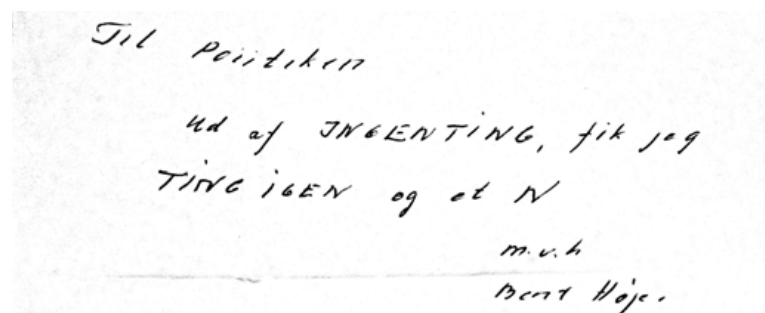 Til Politiken
Ud af INGENTING, fik jeg
TING IGEN og et N
m.v.h
Bent Høje.